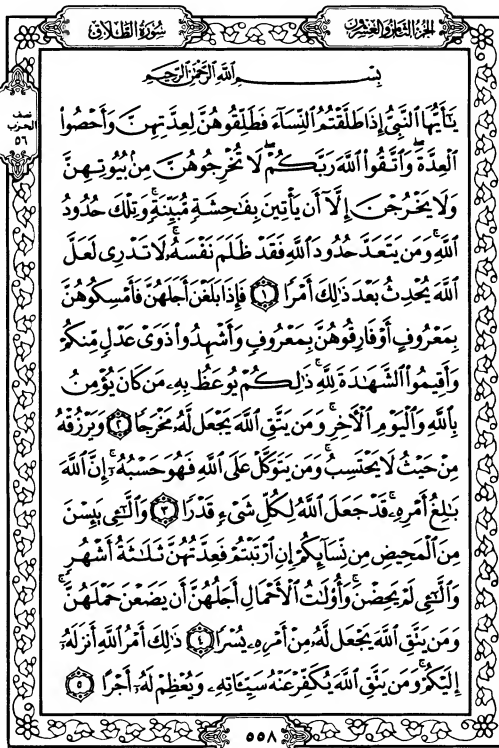 سُورَةُ الطَّلَاقِ
الجُزْءُ الثَّامِنُ وَالعِشْرُونَ
نصف
الحزب
٥٦
بِسْمِ ٱللَّهِ ٱلرَّحْمَٰنِ ٱلرَّحِيمِ
يَٰٓأَيُّهَا ٱلنَّبِىُّ إِذَا طَلَّقْتُمُ ٱلنِّسَآءَ فَطَلِّقُوهُنَّ لِعِدَّتِهِنَّ وَأَحْصُوا۟
ٱلْعِدَّةَ ۖ وَٱتَّقُوا۟ ٱللَّهَ رَبَّكُمْ ۖ لَا تُخْرِجُوهُنَّ مِنۢ بُيُوتِهِنَّ
وَلَا يَخْرُجْنَ إِلَّآ أَن يَأْتِينَ بِفَٰحِشَةٍ مُّبَيِّنَةٍ ۚ وَتِلْكَ حُدُودُ
ٱللَّهِ ۚ وَمَن يَتَعَدَّ حُدُودَ ٱللَّهِ فَقَدْ ظَلَمَ نَفْسَهُۥ ۚ لَا تَدْرِى لَعَلَّ
ٱللَّهَ يُحْدِثُ بَعْدَ ذَٰلِكَ أَمْرًا ١ فَإِذَا بَلَغْنَ أَجَلَهُنَّ فَأَمْسِكُوهُنَّ
بِمَعْرُوفٍ أَوْ فَارِقُوهُنَّ بِمَعْرُوفٍ وَأَشْهِدُوا۟ ذَوَىْ عَدْلٍ مِّنكُمْ
وَأَقِيمُوا۟ ٱلشَّهَٰدَةَ لِلَّهِ ۚ ذَٰلِكُمْ يُوعَظُ بِهِۦ مَن كَانَ يُؤْمِنُ
بِٱللَّهِ وَٱلْيَوْمِ ٱلْءَاخِرِ ۚ وَمَن يَتَّقِ ٱللَّهَ يَجْعَل لَّهُۥ مَخْرَجًا ٢ وَيَرْزُقْهُ
مِنْ حَيْثُ لَا يَحْتَسِبُ ۚ وَمَن يَتَوَكَّلْ عَلَى ٱللَّهِ فَهُوَ حَسْبُهُۥٓ ۚ إِنَّ ٱللَّهَ
بَٰلِغُ أَمْرِهِۦ ۚ قَدْ جَعَلَ ٱللَّهُ لِكُلِّ شَىْءٍ قَدْرًا ٣ وَٱلَّٰٓـِٔى يَئِسْنَ
مِنَ ٱلْمَحِيضِ مِن نِّسَآئِكُمْ إِنِ ٱرْتَبْتُمْ فَعِدَّتُهُنَّ ثَلَٰثَةُ أَشْهُرٍ
وَٱلَّٰٓـِٔى لَمْ يَحِضْنَ ۚ وَأُو۟لَٰتُ ٱلْأَحْمَالِ أَجَلُهُنَّ أَن يَضَعْنَ حَمْلَهُنَّ ۚ
وَمَن يَتَّقِ ٱللَّهَ يَجْعَل لَّهُۥ مِنْ أَمْرِهِۦ يُسْرًا ٤ ذَٰلِكَ أَمْرُ ٱللَّهِ أَنزَلَهُۥٓ
إِلَيْكُمْ ۚ وَمَن يَتَّقِ ٱللَّهَ يُكَفِّرْ عَنْهُ سَيِّـَٔاتِهِۦ وَيُعْظِمْ لَهُۥٓ أَجْرًا ٥
٥٥٨